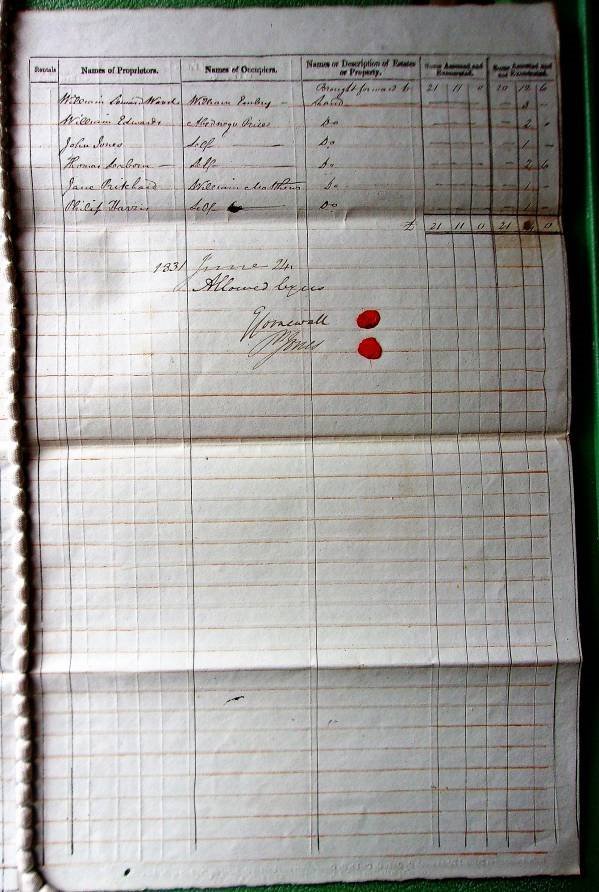 Rentals Names of Proprietors. Names of Occupiers. Names or Description of Estates or Property. Sums Assessed and Exonerated. Sums Assessed and not Exonerated.
Brought forward 21 11 0 20 19 6
William Wood William Land 3 -
William Edwards Abednego Price Do 2 -
John Jones Self Do 1 -
Thomas Self Do 2 6
Jane Pritchard William Matthews Do 1 -
Philip Harris Self Do 1 -
£ 21 11 0 21 0
1831 June 24
Allowed by us
G Cornewall
Jones